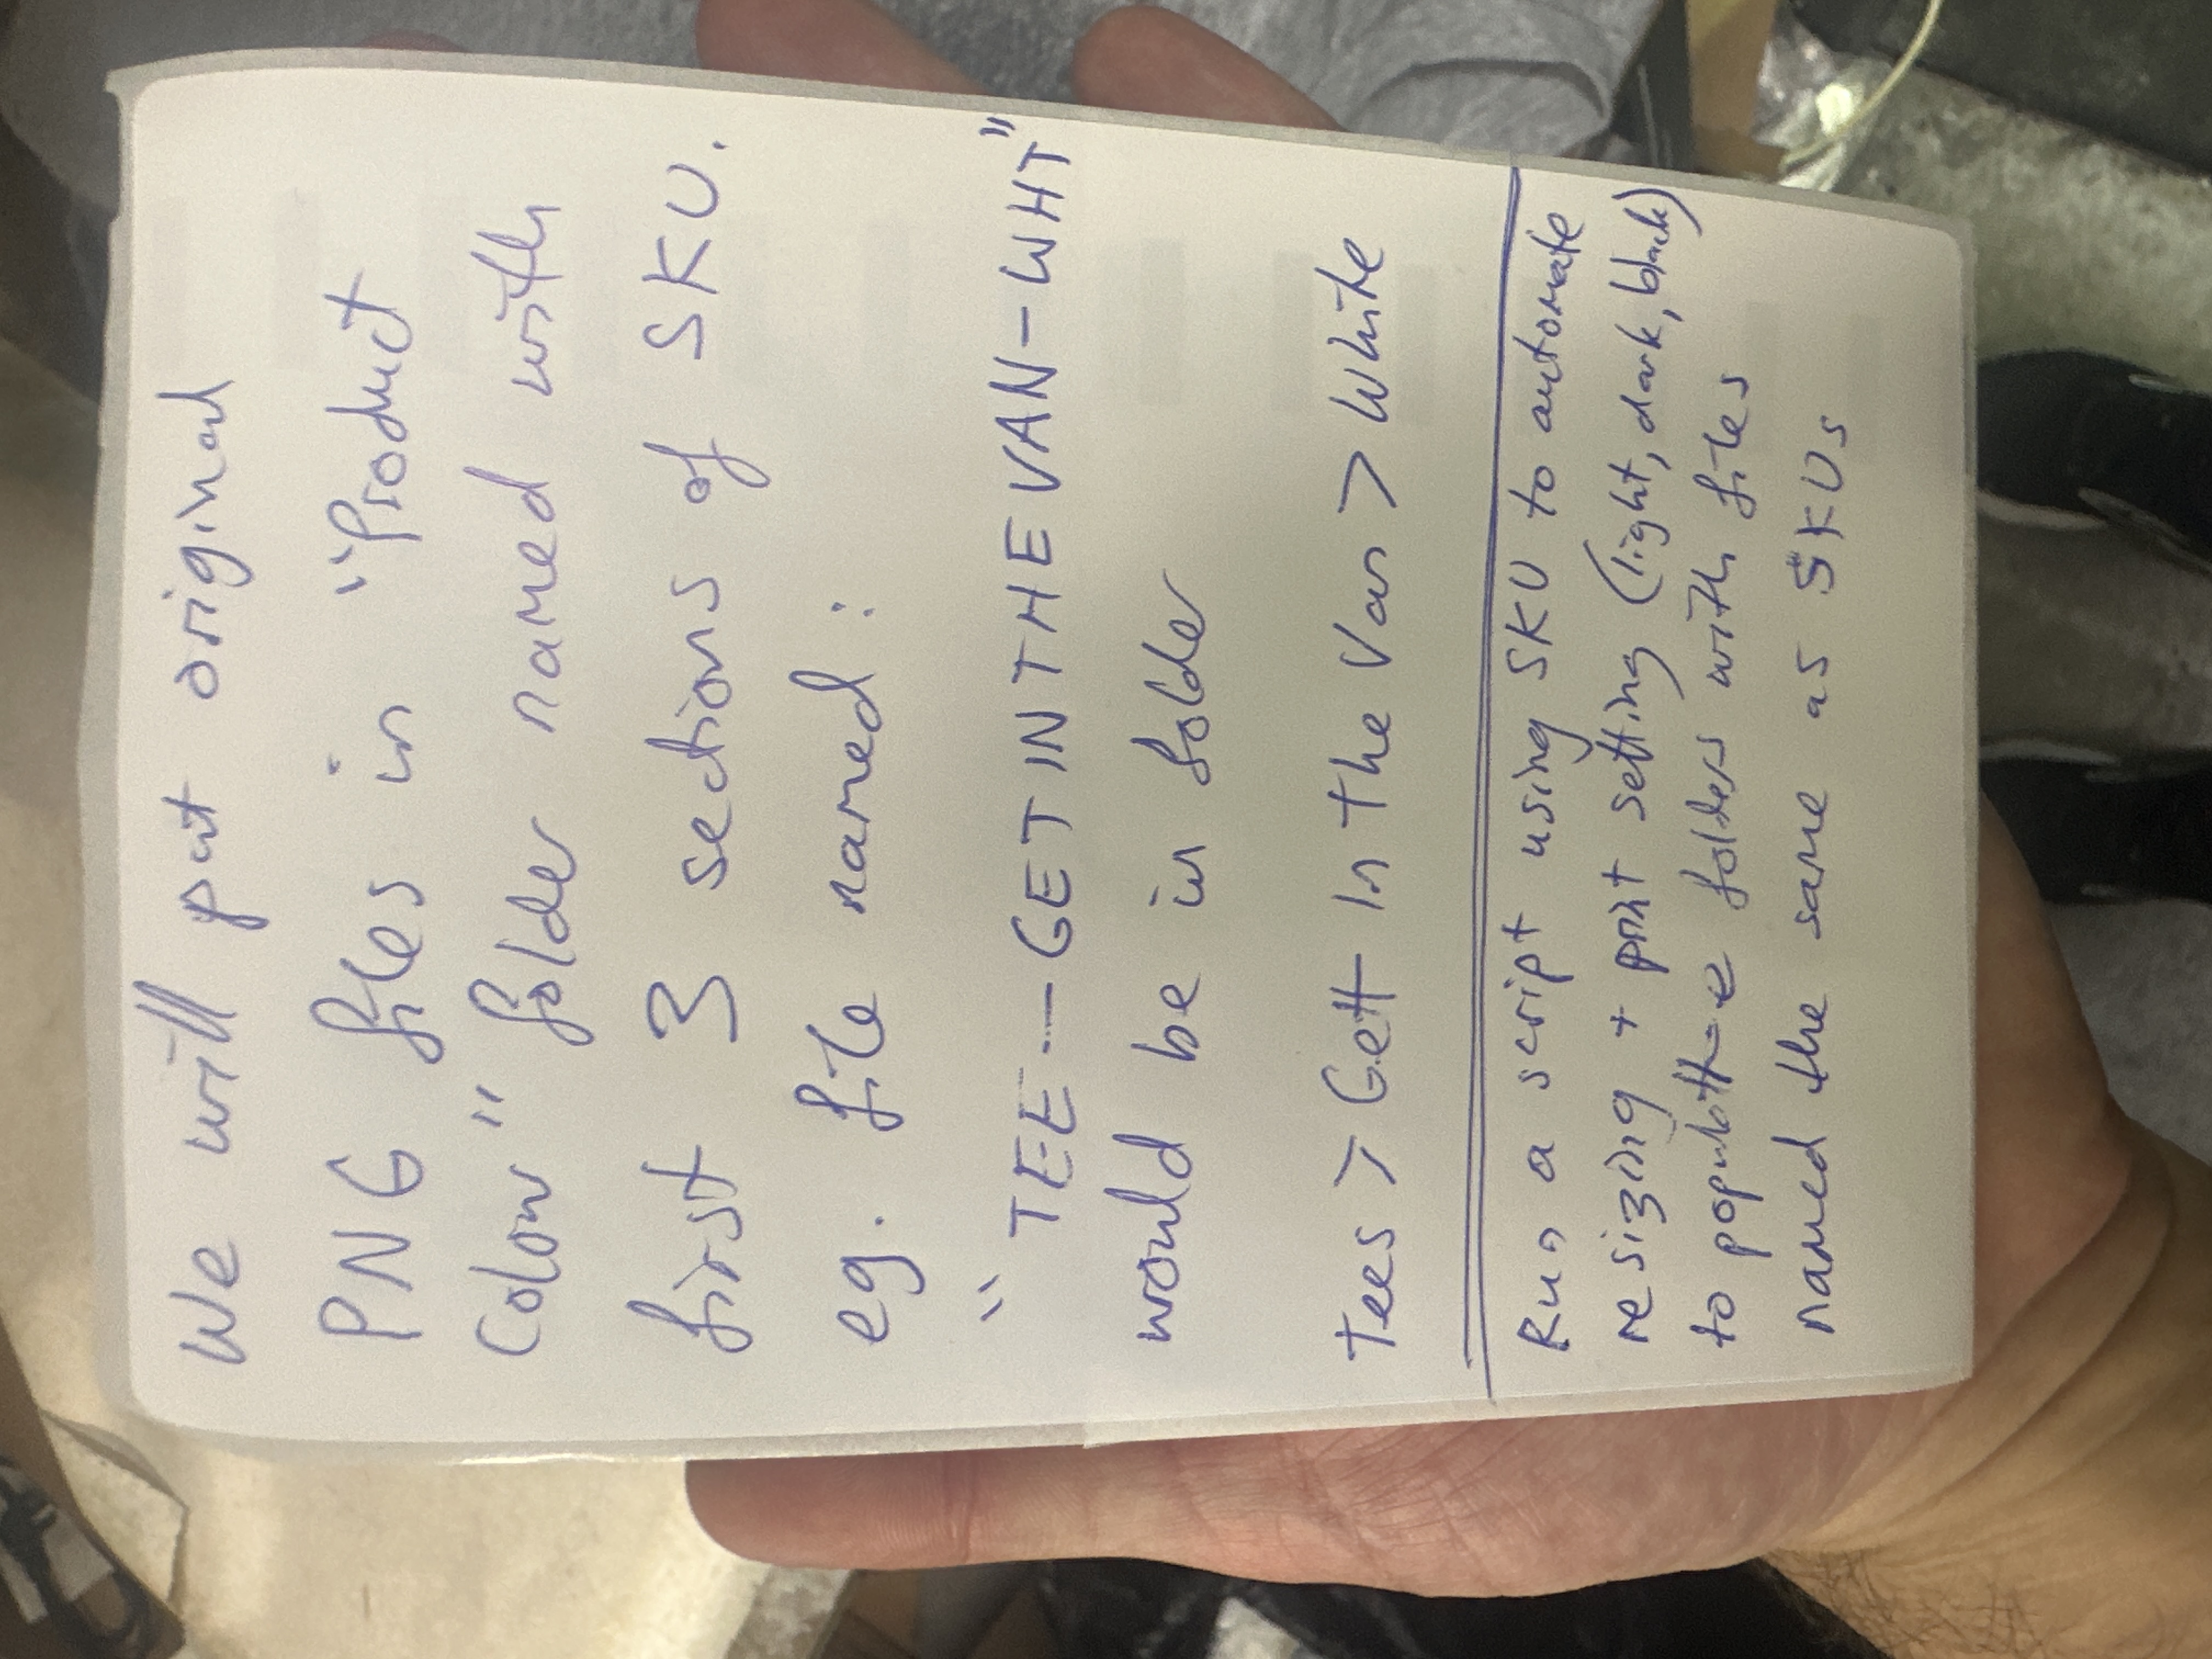 We will put original
PNG files in "Product
Colour" folder named with
first 3 sections of SKU.
eg. file named:
"TEE-GETINTHEVAN-WHT"
would be in folder
Tees > Gett In the Van > White
Run a script using SKU to automate
resizing + print setting (light, dark, black)
to populatte folders with files
named the same as SKUs